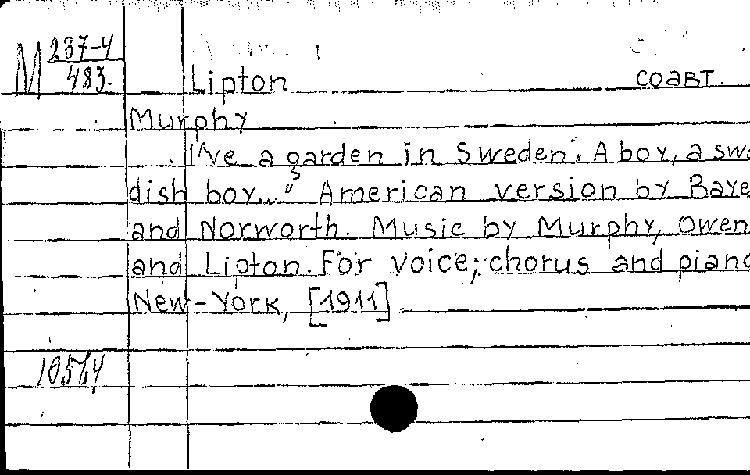 M 237-4
483.
Lipton соавт.
Murphy
I've a garden in Sweden. A boy, a swe
dish boy..." American version by Baye
and Norworth. Music by Murphy, Owen
and Lipton. For voice, chorus and piano
New-York, [1911]
10564